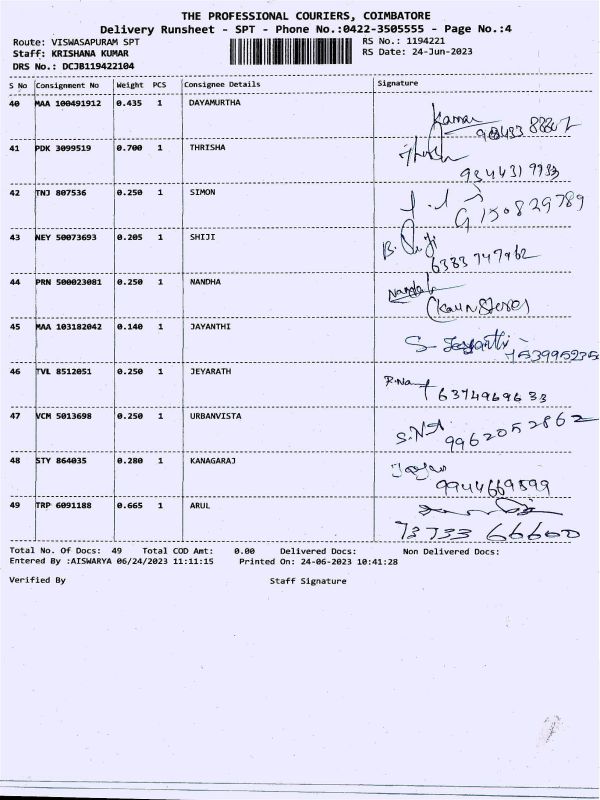 THE PROFESSIONAL COURIERS, COIMBATORE
Delivery Runsheet - SPT - Phone No.:0422-3505555 - Page No.:4
Route: VISWASAPURAM SPT RS No.: 1194221
Staff: KRISHANA KUMAR RS Date: 24-Jun-2023
DRS No.: DCJB119422104
S No Consignment No Weight PCS Consignee Details Signature
40 MAA 100491912 0.435 1 DAYAMURTHA
Kamar
41 PDK 3099519 0.700 1 THRISHA
9344319933
42 TNJ 807536 0.250 1 SIMON
9150829789
43 NEY 50073693 0.205 1 SHIJI
B. Shiji
6383747962
44 PRN 500023081 0.250 1 NANDHA
Nandah
45 MAA 103182042 0.140 1 JAYANTHI
S- Jayanthi
46 TVL 8512051 0.250 1 JEYARATH
6374969633
47 VCM 5013698 0.250 1 URBANVISTA
9962052862
48 STY 864035 0.280 1 KANAGARAJ
9944669599
49 TRP 6091188 0.665 1 ARUL
73733 66600
Total No. Of Docs: 49 Total COD Amt: 0.00 Delivered Docs: Non Delivered Docs:
Entered By :AISWARYA 06/24/2023 11:11:15 Printed On: 24-06-2023 10:41:28
Verified By Staff Signature